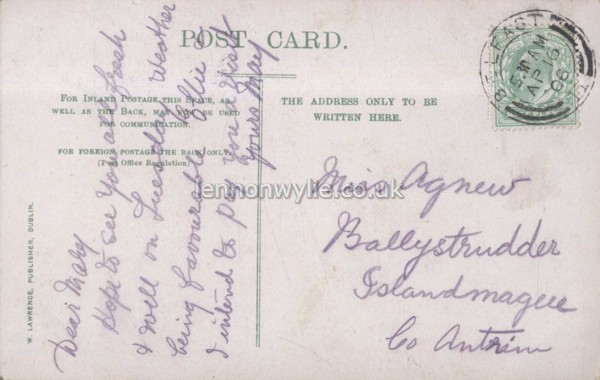 POST CARD.
FOR INLAND POSTAGE THIS SPACE, AS
WELL AS THE BACK, MAY NOW BE USED
FOR COMMUNICATION.
FOR FOREIGN POSTAGE THE BACK ONLY
(Post Office Regulation).
THE ADDRESS ONLY TO BE
WRITTEN HERE.
BELFAST
AP 16
06
Dear Mary
Hope to see you all fresh
& well on Tuesday Weather
being favourable
I intend to pay you a visit
Yours May
Miss Agnew
Ballystrudder
Islandmagee
Co Antrim
lennonwylie.co.uk
W. LAWRENCE, PUBLISHER, DUBLIN.